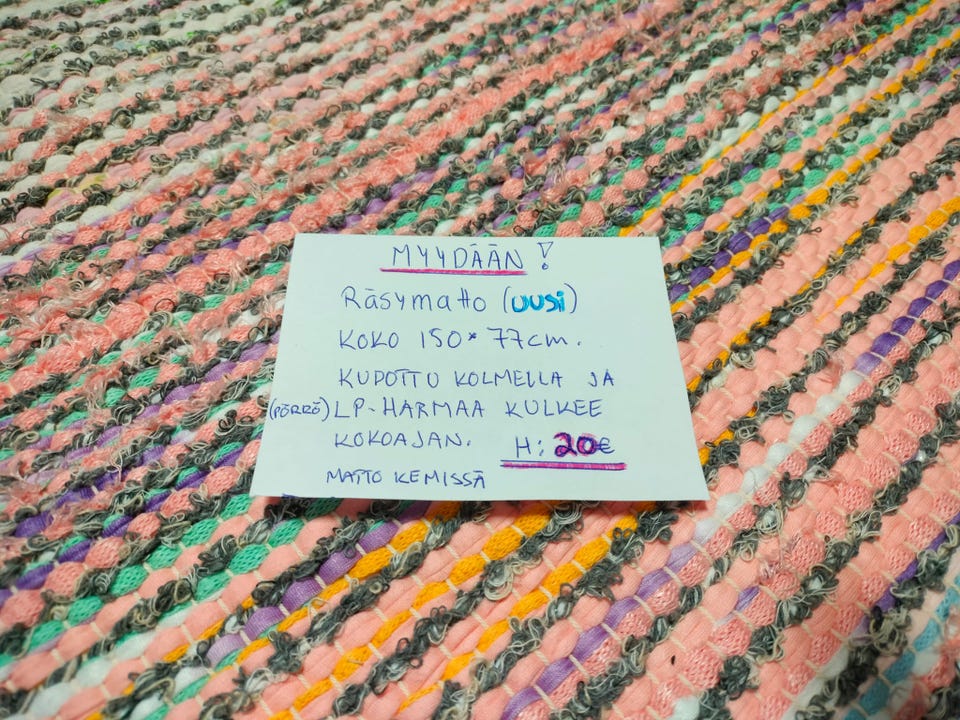 MYYDÄÄN!
Räsymatto (UUSi)
KOKO 150*77cm.
KUDOTTU KOLMELLA JA
(PÖRRÖ) LP-HARMAA KULKEE
KOKOAJAN. H: 20€
MATTO KEMISSÄ